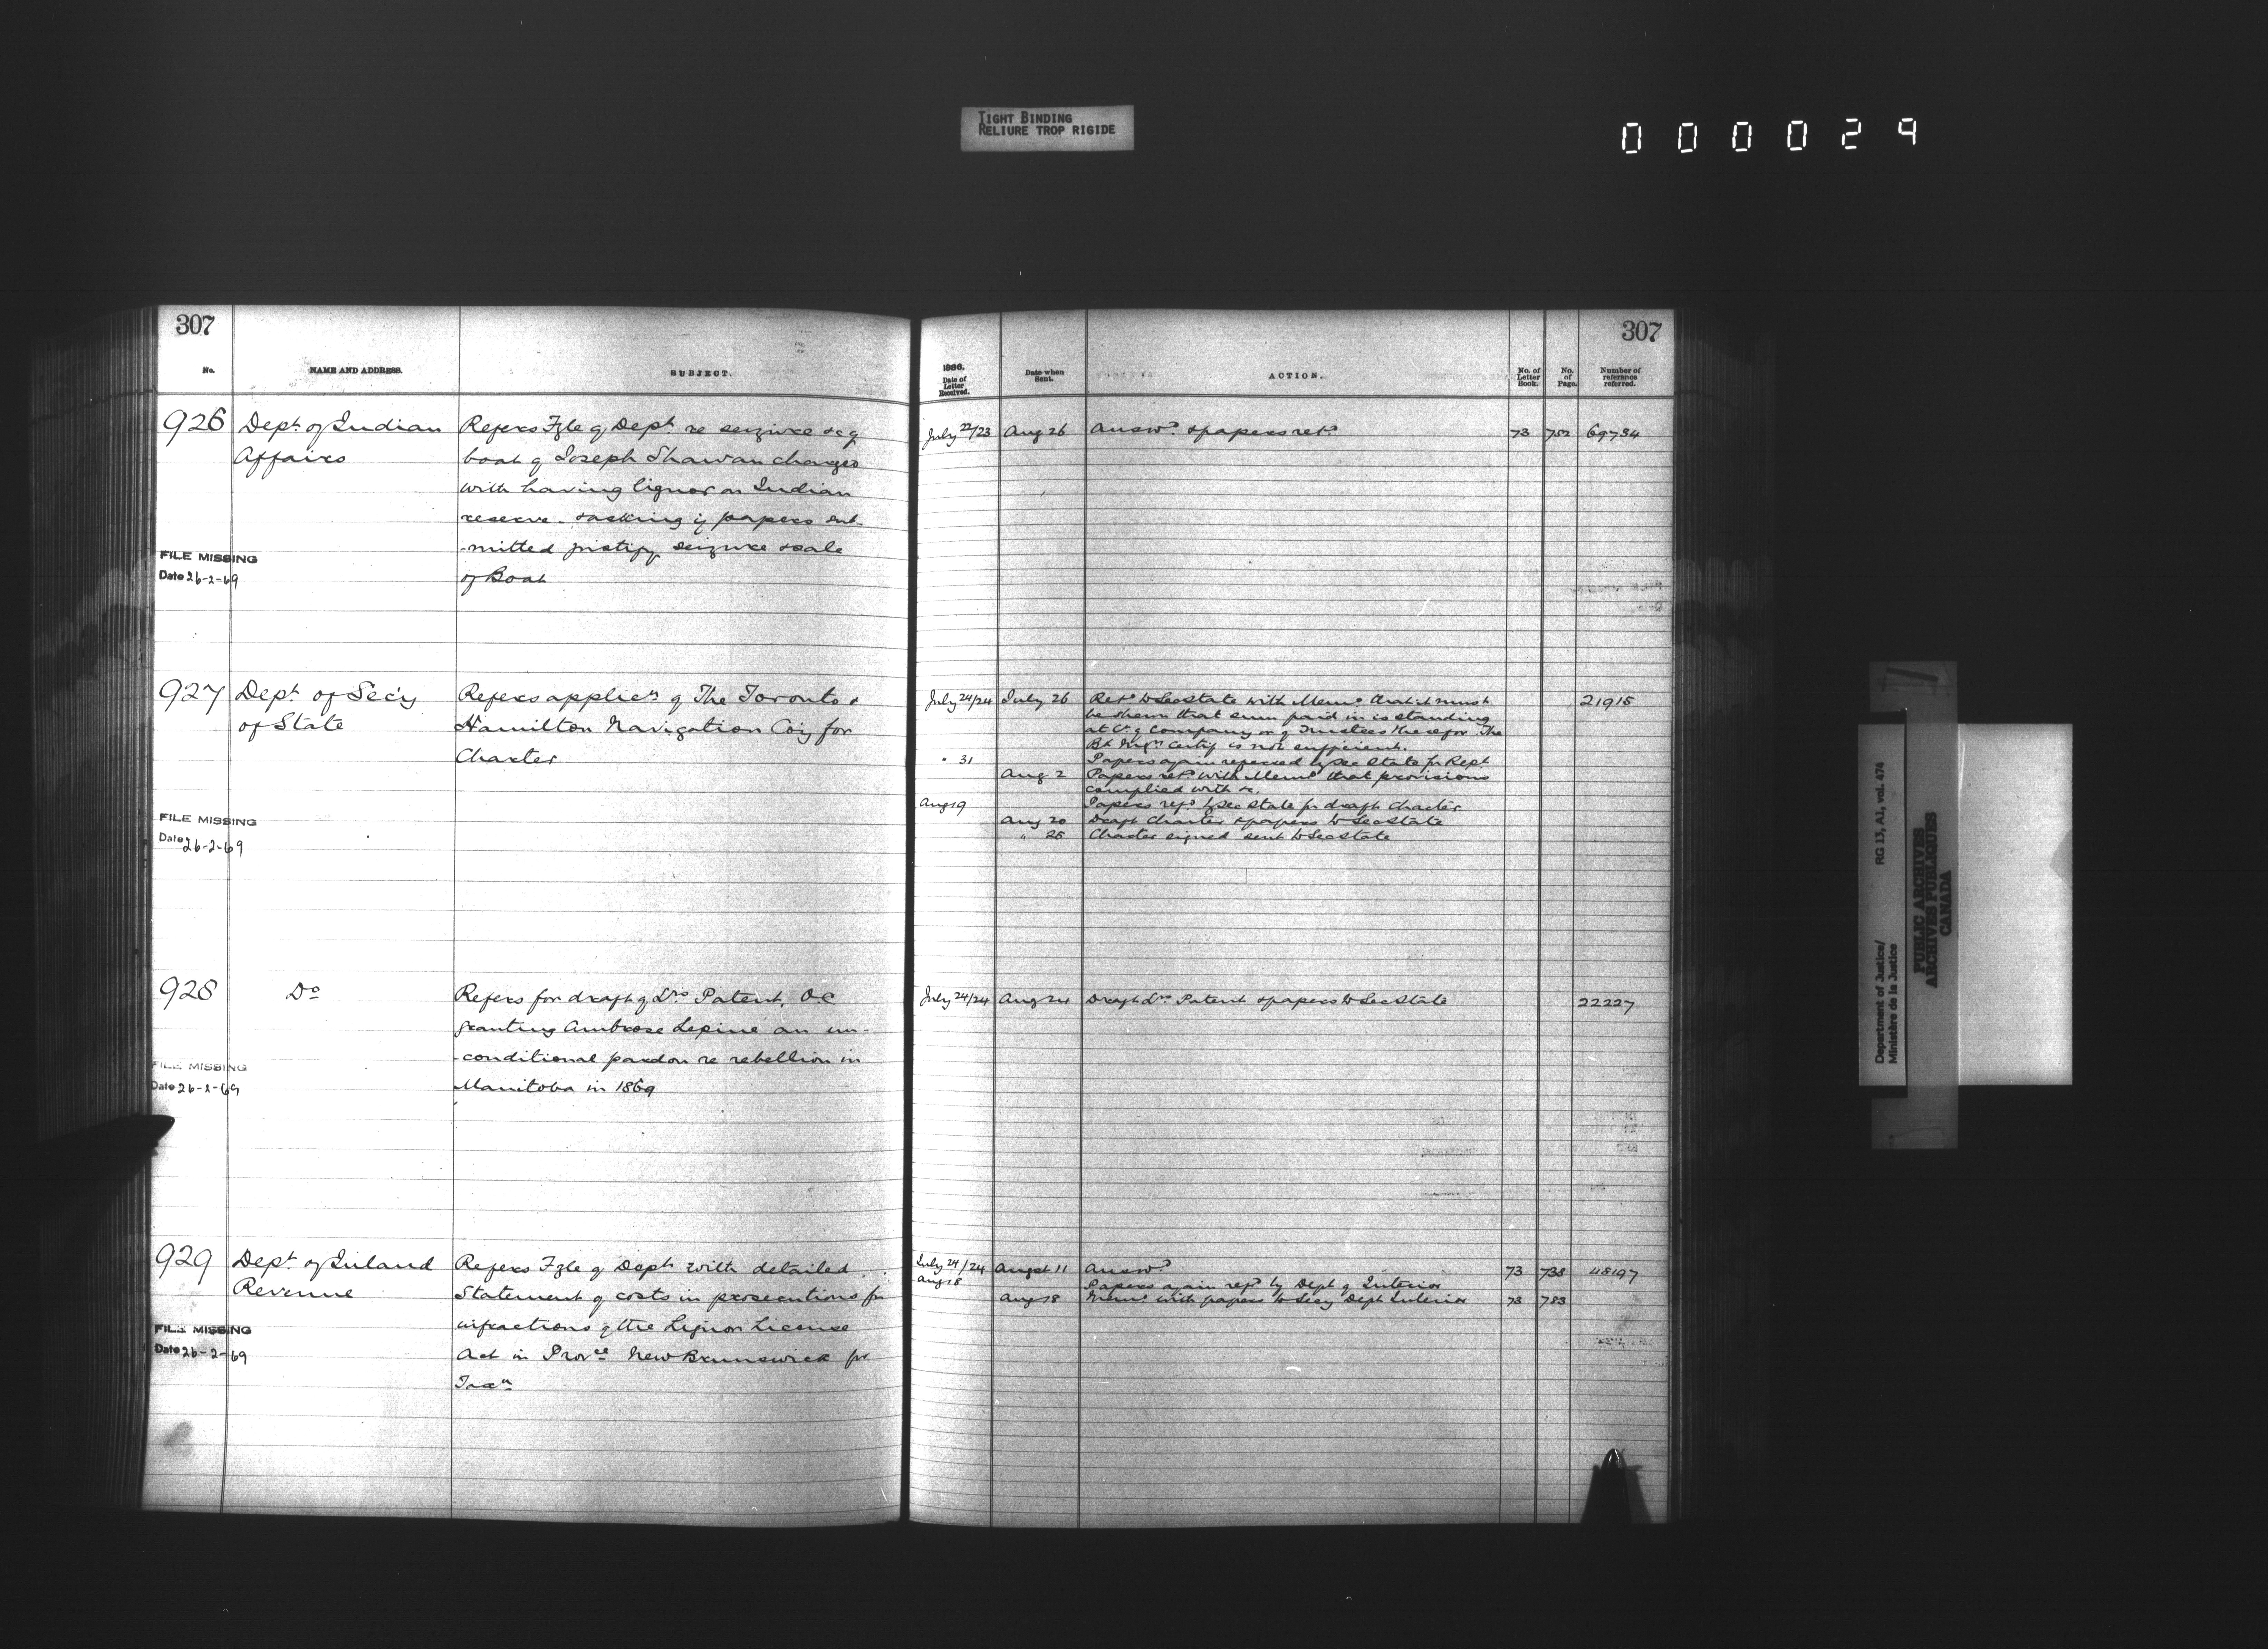 TIGHT BINDING
RELIURE TROP RIGIDE
000029
307
No.
NAME AND ADDRESS.
SUBJECT.
926
Dept. of Indian
Affairs
Refers Fyle of Dept. re seizure &c of
boat of Joseph Shawan charged
with having liquor on Indian
reserve - & asking if papers sub-
-mitted justify seizure & sale
of Boat
FILE MISSING
Date 26-2-69
927
Dept. of Sec'y
of State
Refers applicn of The Toronto &
Hamilton Navigation Coy for
Charter
FILE MISSING
Date 26-2-69
928
Do
Refers for draft of Lrs Patent, O.C
granting Ambrose Lepine an un-
-conditional pardon re rebellion in
Manitoba in 1869
FILE MISSING
Date 26-2-69
929
Dept. of Inland
Revenue
Refers Fyle of Dept with detailed
Statement of costs in prosecutions for
infractions of the Liquor License
Act in Provce New Brunswick for
Taxn
FILE MISSING
Date 26-2-69
307
1886.
Date of
Letter
Received.
Date when
Sent.
ACTION.
No. of
Letter
Book.
No.
of
Page.
Number of
reference
referred.
July 22/23 Aug 26 Answd. & papers retd. 73 752 69734
July 24/24 July 26 Retd to Sec State with Memo that it must 21915
be shewn that sum paid in is standing
at Cr of Company or of Trustees therefor The
Bk Mgrs Certif is not sufficient.
" 31 Papers again referred by Sec State for Rept
Aug 2 Papers retd with Memo that provisions
complied with &c.
Aug 19 Papers refd by Sec State for draft Charter
Aug 20 Draft Charter & papers to Sec State
" 25 Charter signed sent to Sec State
July 24/24 Aug 24 Draft Lrs Patent & papers to Sec State 22227
July 24/24 Augst 11 Answd 73 738 48197
Aug 18 Papers again refd by Dept of Interior
Aug 18 Memo with papers to Secy Dept Interior 73 783
Department of Justice/ RG 13, A1, vol. 474
Ministère de la Justice
PUBLIC ARCHIVES
ARCHIVES PUBLIQUES
CANADA